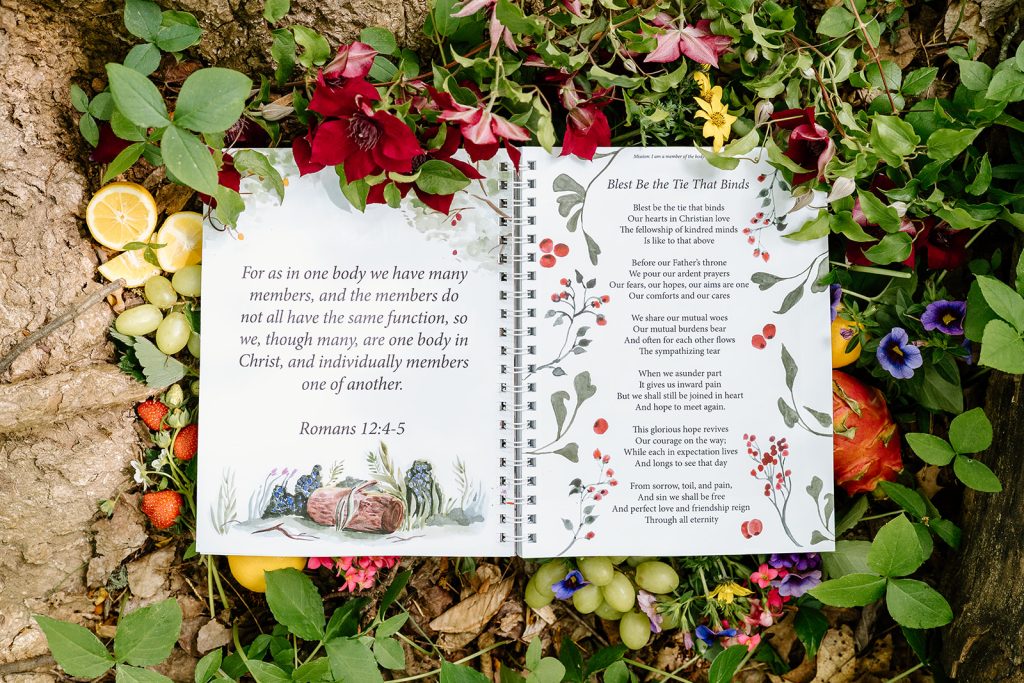 For as in one body we have many
members, and the members do
not all have the same function, so
we, though many, are one body in
Christ, and individually members
one of another.
Romans 12:4-5
Mission: I am a member of the body
Blest Be the Tie That Binds
Blest be the tie that binds
Our hearts in Christian love
The fellowship of kindred minds
Is like to that above
Before our Father's throne
We pour our ardent prayers
Our fears, our hopes, our aims are one
Our comforts and our cares
We share our mutual woes
Our mutual burdens bear
And often for each other flows
The sympathizing tear
When we asunder part
It gives us inward pain
But we shall still be joined in heart
And hope to meet again.
This glorious hope revives
Our courage on the way;
While each in expectation lives
And longs to see that day
From sorrow, toil, and pain,
And sin we shall be free
And perfect love and friendship reign
Through all eternity